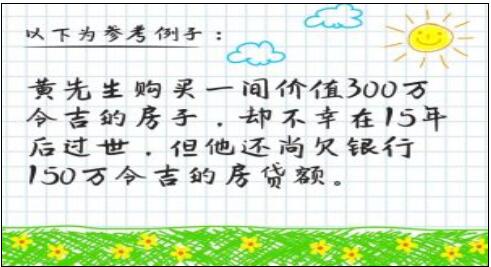 以下为参考例子：
黄先生购买一间价值300万
令吉的房子，却不幸在15年
后过世，但他还尚欠银行
150万令吉的房贷额。